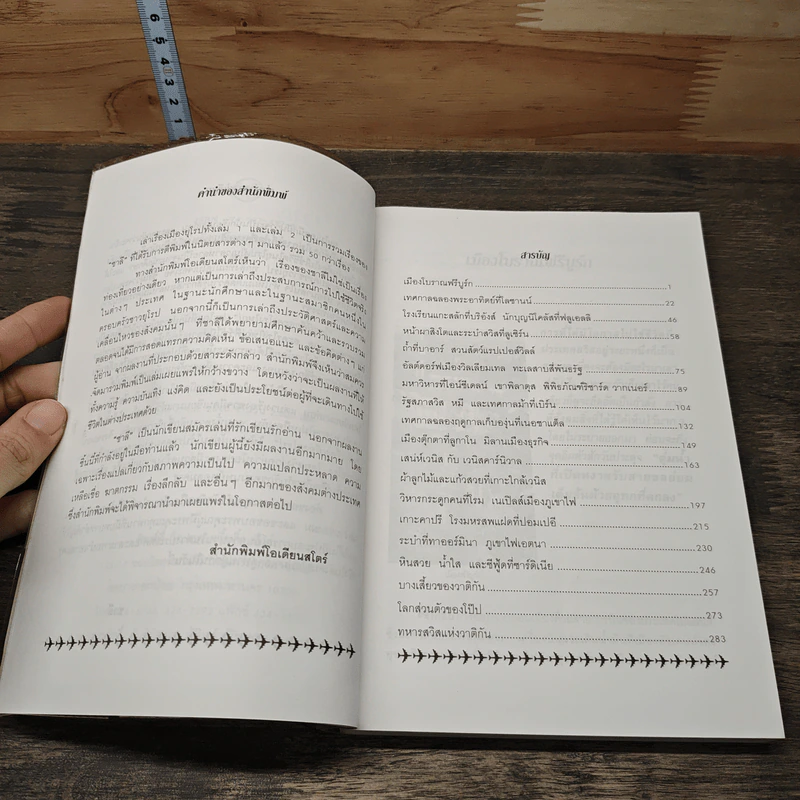 6
5
4
3
2
1
คำนำของสำนักพิมพ์
เล่าเรื่องเมืองยุโรปทั้งเล่ม 1 และเล่ม 2 เป็นการรวมเรื่องของ
"ชาลี" ที่ได้รับการตีพิมพ์ในนิตยสารต่างๆ มาแล้ว รวม 50 กว่าเรื่อง
ทางสำนักพิมพ์โอเดียนสโตร์เห็นว่า เรื่องของชาลีไม่ใช่เป็นเรื่อง
ท่องเที่ยวอย่างเดียว หากแต่เป็นการเล่าถึงประสบการณ์การไปใช้ชีวิตจริง
ในต่างๆ ประเทศ ในฐานะนักศึกษาและในฐานะสมาชิกคนหนึ่งใน
ครอบครัวชาวยุโรป นอกจากนี้ก็เป็นการเล่าถึงประวัติศาสตร์และความ
เคลื่อนไหวของสังคมนั้นๆ ที่ชาลีได้พยายามศึกษาค้นคว้าและรวบรวม
ตลอดจนได้มีการสอดแทรกความคิดเห็น ข้อเสนอแนะ และข้อคิดต่างๆ แก่
ผู้อ่าน จากผลงานที่ประกอบด้วยสาระดังกล่าว สำนักพิมพ์จึงเห็นว่าสมควร
จัดมารวมพิมพ์เป็นเล่มเผยแพร่ให้กว้างขวาง โดยหวังว่าจะเป็นผลงานที่ให้
ทั้งความรู้ ความบันเทิง แง่คิด และยังเป็นประโยชน์ต่อผู้ที่จะเดินทางไปใช้
ชีวิตในต่างประเทศด้วย
"ชาลี" เป็นนักเขียนสมัครเล่นที่รักเขียนรักอ่าน นอกจากผลงาน
ชิ้นนี้ที่กำลังอยู่ในมือท่านแล้ว นักเขียนผู้นี้ยังมีผลงานอีกมากมาย โดย
เฉพาะเรื่องแปลเกี่ยวกับสภาพความเป็นไป ความแปลกประหลาด ความ
เหลือเชื่อ ฆาตกรรม เรื่องลึกลับ และอื่นๆ อีกมากของสังคมต่างประเทศ
ซึ่งสำนักพิมพ์จะได้พิจารณานำมาเผยแพร่ในโอกาสต่อไป
สำนักพิมพ์โอเดียนสโตร์
สารบัญ
เมืองโบราณฟรีบูร์ก 1
เทศกาลฉลองพระอาทิตย์ที่โลซานน์ 22
โรงเรียนแกะสลักที่บริอังส์ นักบุญนิโคลัสที่ฟลูเอลลิ 46
หน้าผาสิงโตและระบำสวิสที่ลูเซิร์น 58
ถ้ำที่บาอาร์ สวนสัตว์แรปเปอสวิลล์
อัลต์ดอร์ฟเมืองวิลเลียมเทล ทะเลสาบสี่พันธรัฐ 75
มหาวิหารที่ไอน์ซีเดลน์ เขาพิลาตุส พิพิธภัณฑ์ริชาร์ด วากเนอร์ 89
รัฐสภาสวิส หมี และเทศกาลม้าที่เบิร์น 104
เทศกาลฉลองฤดูกาลเก็บองุ่นที่เนอชาแต็ล 132
เมืองตุ๊กตาที่ลูกาโน มิลานเมืองธุรกิจ 149
เสน่ห์เวนิส กับ เวนิสคาร์นิวาล 163
ผ้าลูกไม้และแก้วสวยที่เกาะใกล้เวนิส
วิหารกระดูกคนที่โรม เนเปิลส์เมืองภูเขาไฟ 197
เกาะคาปรี โรงมหรสพแฝดที่ปอมเปอี 215
ระบำที่ทาออร์มินา ภูเขาไฟเอตนา 230
หินสวย น้ำใส และซีฟู้ดที่ซาร์ดิเนีย 246
บางเสี้ยวของวาติกัน 257
โลกส่วนตัวของโป๊ป 273
ทหารสวิสแห่งวาติกัน 283